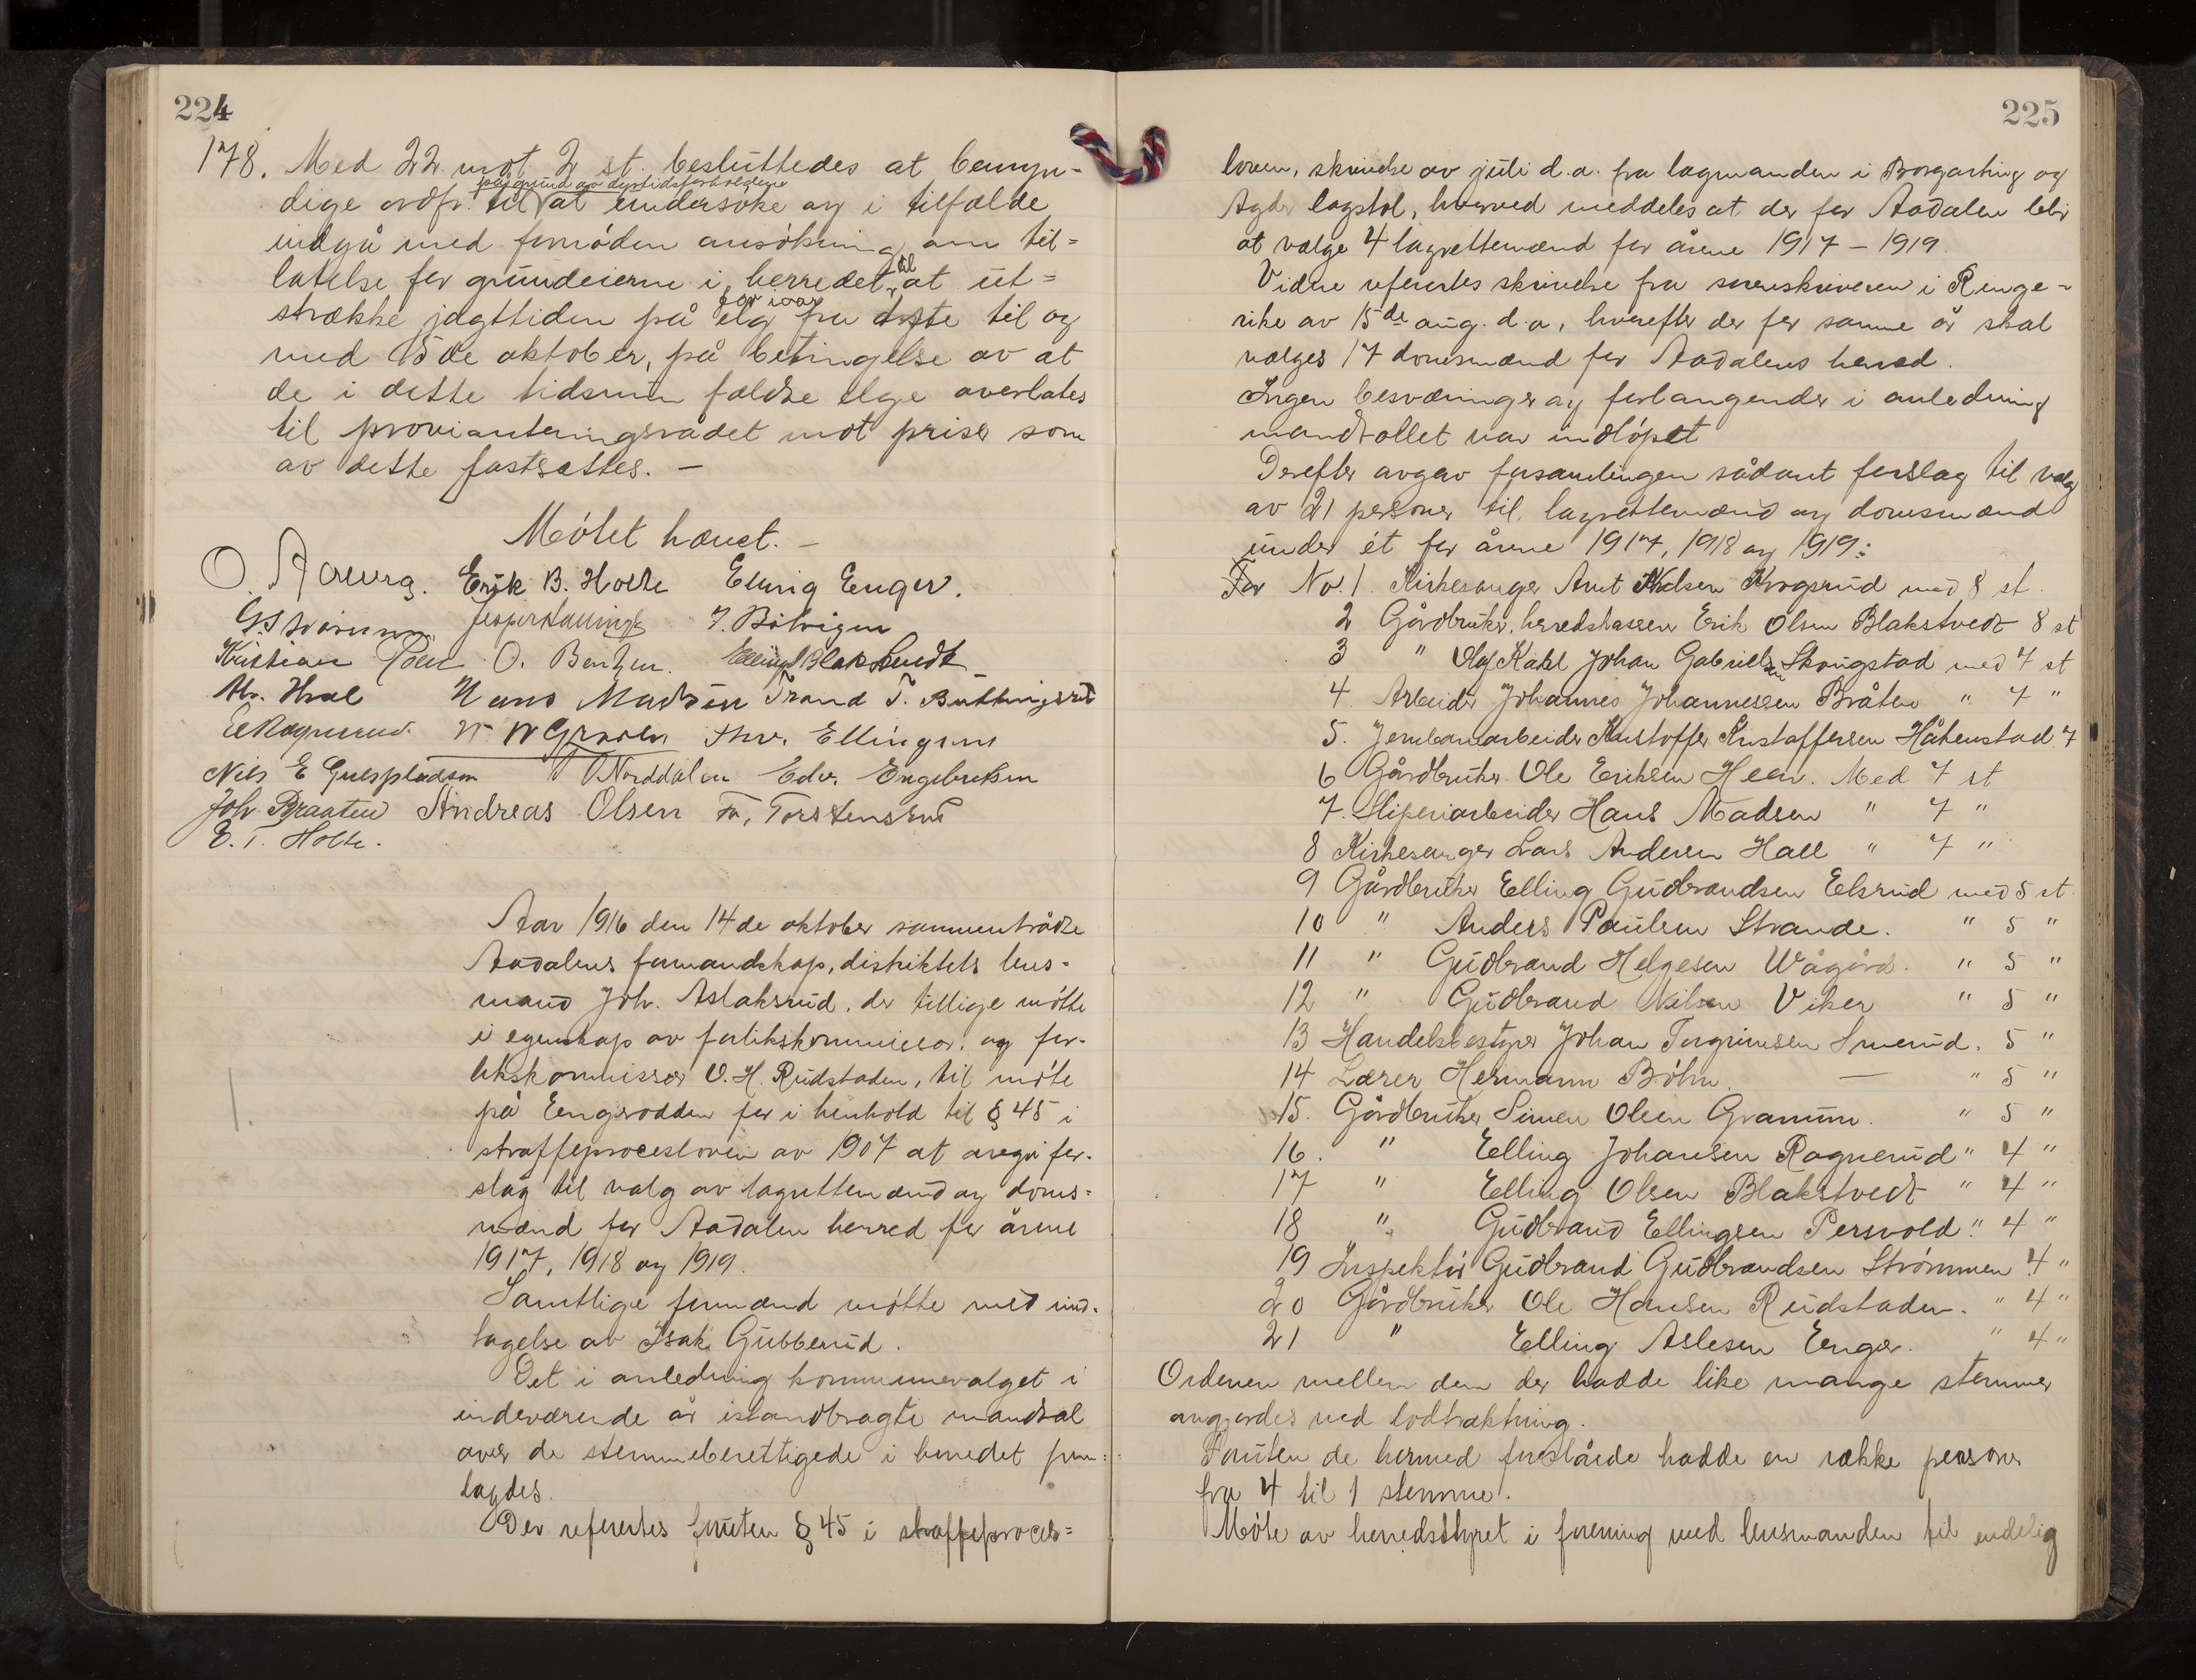 224
178. Med 22 mot 2 st. besluttedes at bemyn-
på grund av dyrtidsforholdene
dige ordf. til at undersøke og i tilfælde
indgå med fornøden ansøkning om til=
latelse for grundeierne i herredet til at ut=
for iaar
strække jagttiden på elg fra dette til og
med 15de oktober, på betingelse av at
de i dette tidsrum fældte elge overlates
til provianteringsrådet mot priser som
av dette fastsættes. —
Møtet hævet. —
O. Erik B. Holte Elling Enger.
Jesper
Kristian O. Bentzen. Elling Blakstvedt
Hans Madsen Trand T. Buttingsrud
E Ragnerud. Ellingsen
Nils E Norddalen Edv. Engebretsen
Joh. Braaten Andreas Olsen Torstensrud
E. T. Holte.
Aar 1916 den 14de oktober sammentrådte
Aadalens formandskap, distriktets lens-
mand Joh. Aslaksrud, der tillige møtte
i egenskap av forlikskommissær, og for-
likskommissær O. H. Rudstaden, til møte
på Engerodden for i henhold til § 45 i
straffeprocesloven av 1907 at avgi for-
slag til valg av lagrettemænd og doms=
mænd for Aadalen herred for årene
1917, 1918 og 1919.
Samtlige formænd møtte med und-
tagelse av Isak Gubberud.
Det i anledning kommunevalget i
indeværende år istandbragte mandtal
over de stemmeberettigede i herredet frem=
lagdes.
Der refertes foruten § 45 i straffeproces=
225
loven, skrivelse av juli d.a. fra lagmanden i Borgarting og
Agder lagstol, hvorved meddeles at der for Aadalen blir
at vælge 4 lagrettemænd for årene 1917 – 1919.
Videre refertes skrivelse fra sorenskriveren i Ringe-
rike av 15de aug. d.a., hvorefter der for samme år skal
vælges 17 domsmænd for Aadalens herred.
Ingen besværinger og forlangender i anledning
mandtallet var indløpet
Derefter avgav forsamlingen sådant forslag til valg
av 21 personer til lagrettemænd og domsmænd
under ét for årene 1917, 1918 og 1919:
For No. 1. Kirkesanger Arnt Nilsen Krogsrud med 8 st.
2 Gårdbruker, herredskasserer Erik Olsen Blakstvedt 8 st
3 " Olaf Karl Johan Gabrielsen Skougstad med 7 st
4. Arbeider Johannes Johannessen Bråten " 7 "
5. Jernbanearbeider Kristoffer Kristoffersen Håkenstad 7
6 Gårdbruker Ole Eriksen Heen. Med 7 st
7. Sliperiarbeider Hans Madsen " 7 "
8 Kirkesanger Lars Andersen Hall " 7 "
9 Gårdbruker Elling Gudbrandsen Elsrud med 5 st.
10 " Anders Paulsen Strande. " 5 "
11 " Gudbrand Helgesen Vågård. " 5 "
12 " Gudbrand Nilsen Viker " 5 "
13 Handelsbestyrer Johan Torgrimsen Smerud. 5 "
14 Lærer Hermann Bøhn. — " 5 "
15. Gårdbruker Simen Olsen Granum. " 5 "
16. " Elling Johansen Ragnerud " 4 "
17 " Elling Olsen Blakstvedt " 4 "
18 " Gudbrand Ellingsen Persvold " 4 "
19 Inspektør Gudbrand Gudbrandsen Strømmen 4 "
20 Gårdbruker Ole Hansen Rudstaden. " 4 "
21 " Elling Aslesen Enger. " 4 "
Ordenen mellem dem der hadde like mange stemmer
avgjordes ved lodtrækning.
Foruten de hermed foreslåede hadde en række personer
fra 4 til 1 stemme.
Møte av herredsstyret i forening med lensmanden til endelig